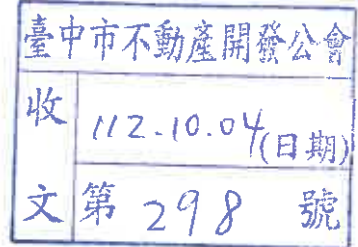 臺中市不動產開發公會
收文
112.10.04(日期)
第 298 號